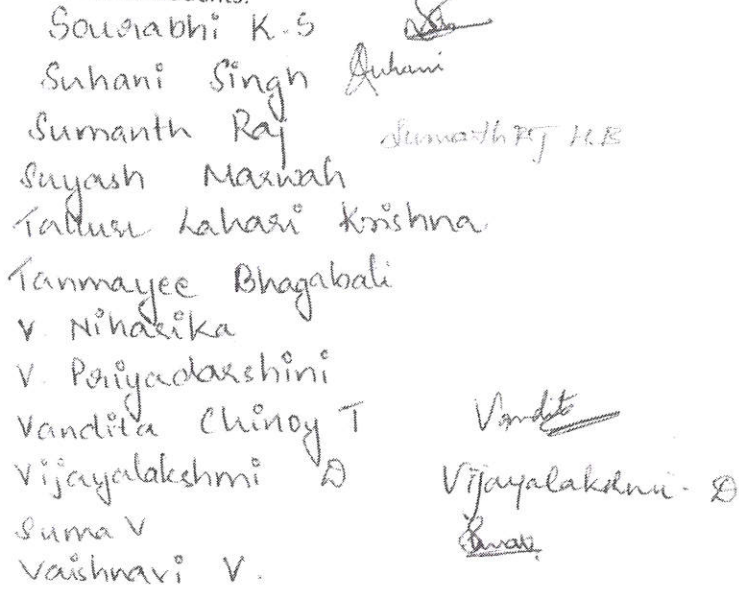 Sourabhi K.S
Suhani Singh Suhani
Sumanth Raj Sumanth RJ H.B
Suyash Marwah
Lahari Krishna
Tanmayee Bhagabali
V Niharika
V. Priyadarshini
Vandita Chinoy T Vandita
Vijayalakshmi D Vijayalakshmi - D
Suma V
Vaishnavi V.